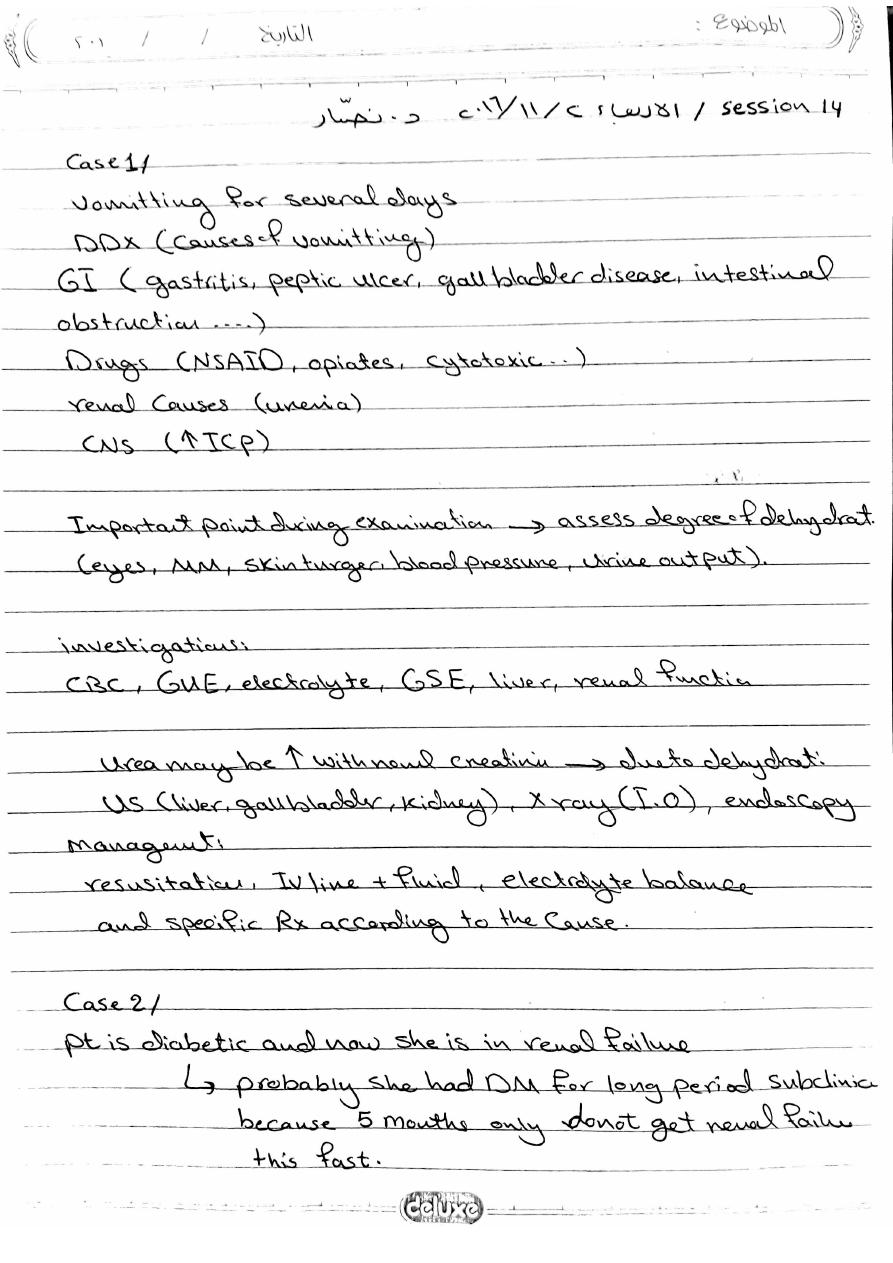 الموضوع :
التاريخ / / ٢٠١
session 14 / الاربعاء ٢٠١٦/١١/٢ د. نصّار
Case 1/
vomitting for several days
DDX (causes of vomitting)
GI ( gastritis, peptic ulcer, gall bladder disease, intestinal
obstruction ....)
Drugs (NSAID, opiates, cytotoxic ..)
renal Causes (uremia)
CNS (↑ICP)
Important point during examination → assess degree of dehydrat.
(eyes, MM, skin turger, blood pressure, urine output).
investigations:
CBC, GUE, electrolyte, GSE, liver, renal function
Urea may be ↑ with normal creatinin → due to dehydrat:
US (liver, gallbladder, kidney), X ray (I.O), endoscopy
Managemt:
resusitation, IV line + fluid, electrolyte balance
and specific Rx according to the Cause.
Case 2/
Pt is diabetic and now she is in renal failure
↳ probably she had DM for long period subclinic
because 5 months only donot get renal failure
this fast.
deluxe